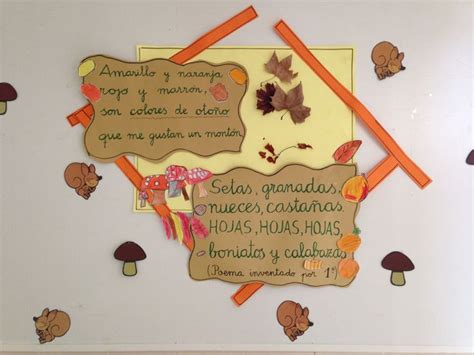 Amarillo y naranja
rojo y marrón,
son colores de otoño
que me gustan un montón
Setas, granadas,
nueces, castañas.
HOJAS, HOJAS, HOJAS,
boniatos y calabazas
(Poema inventado por 1º)